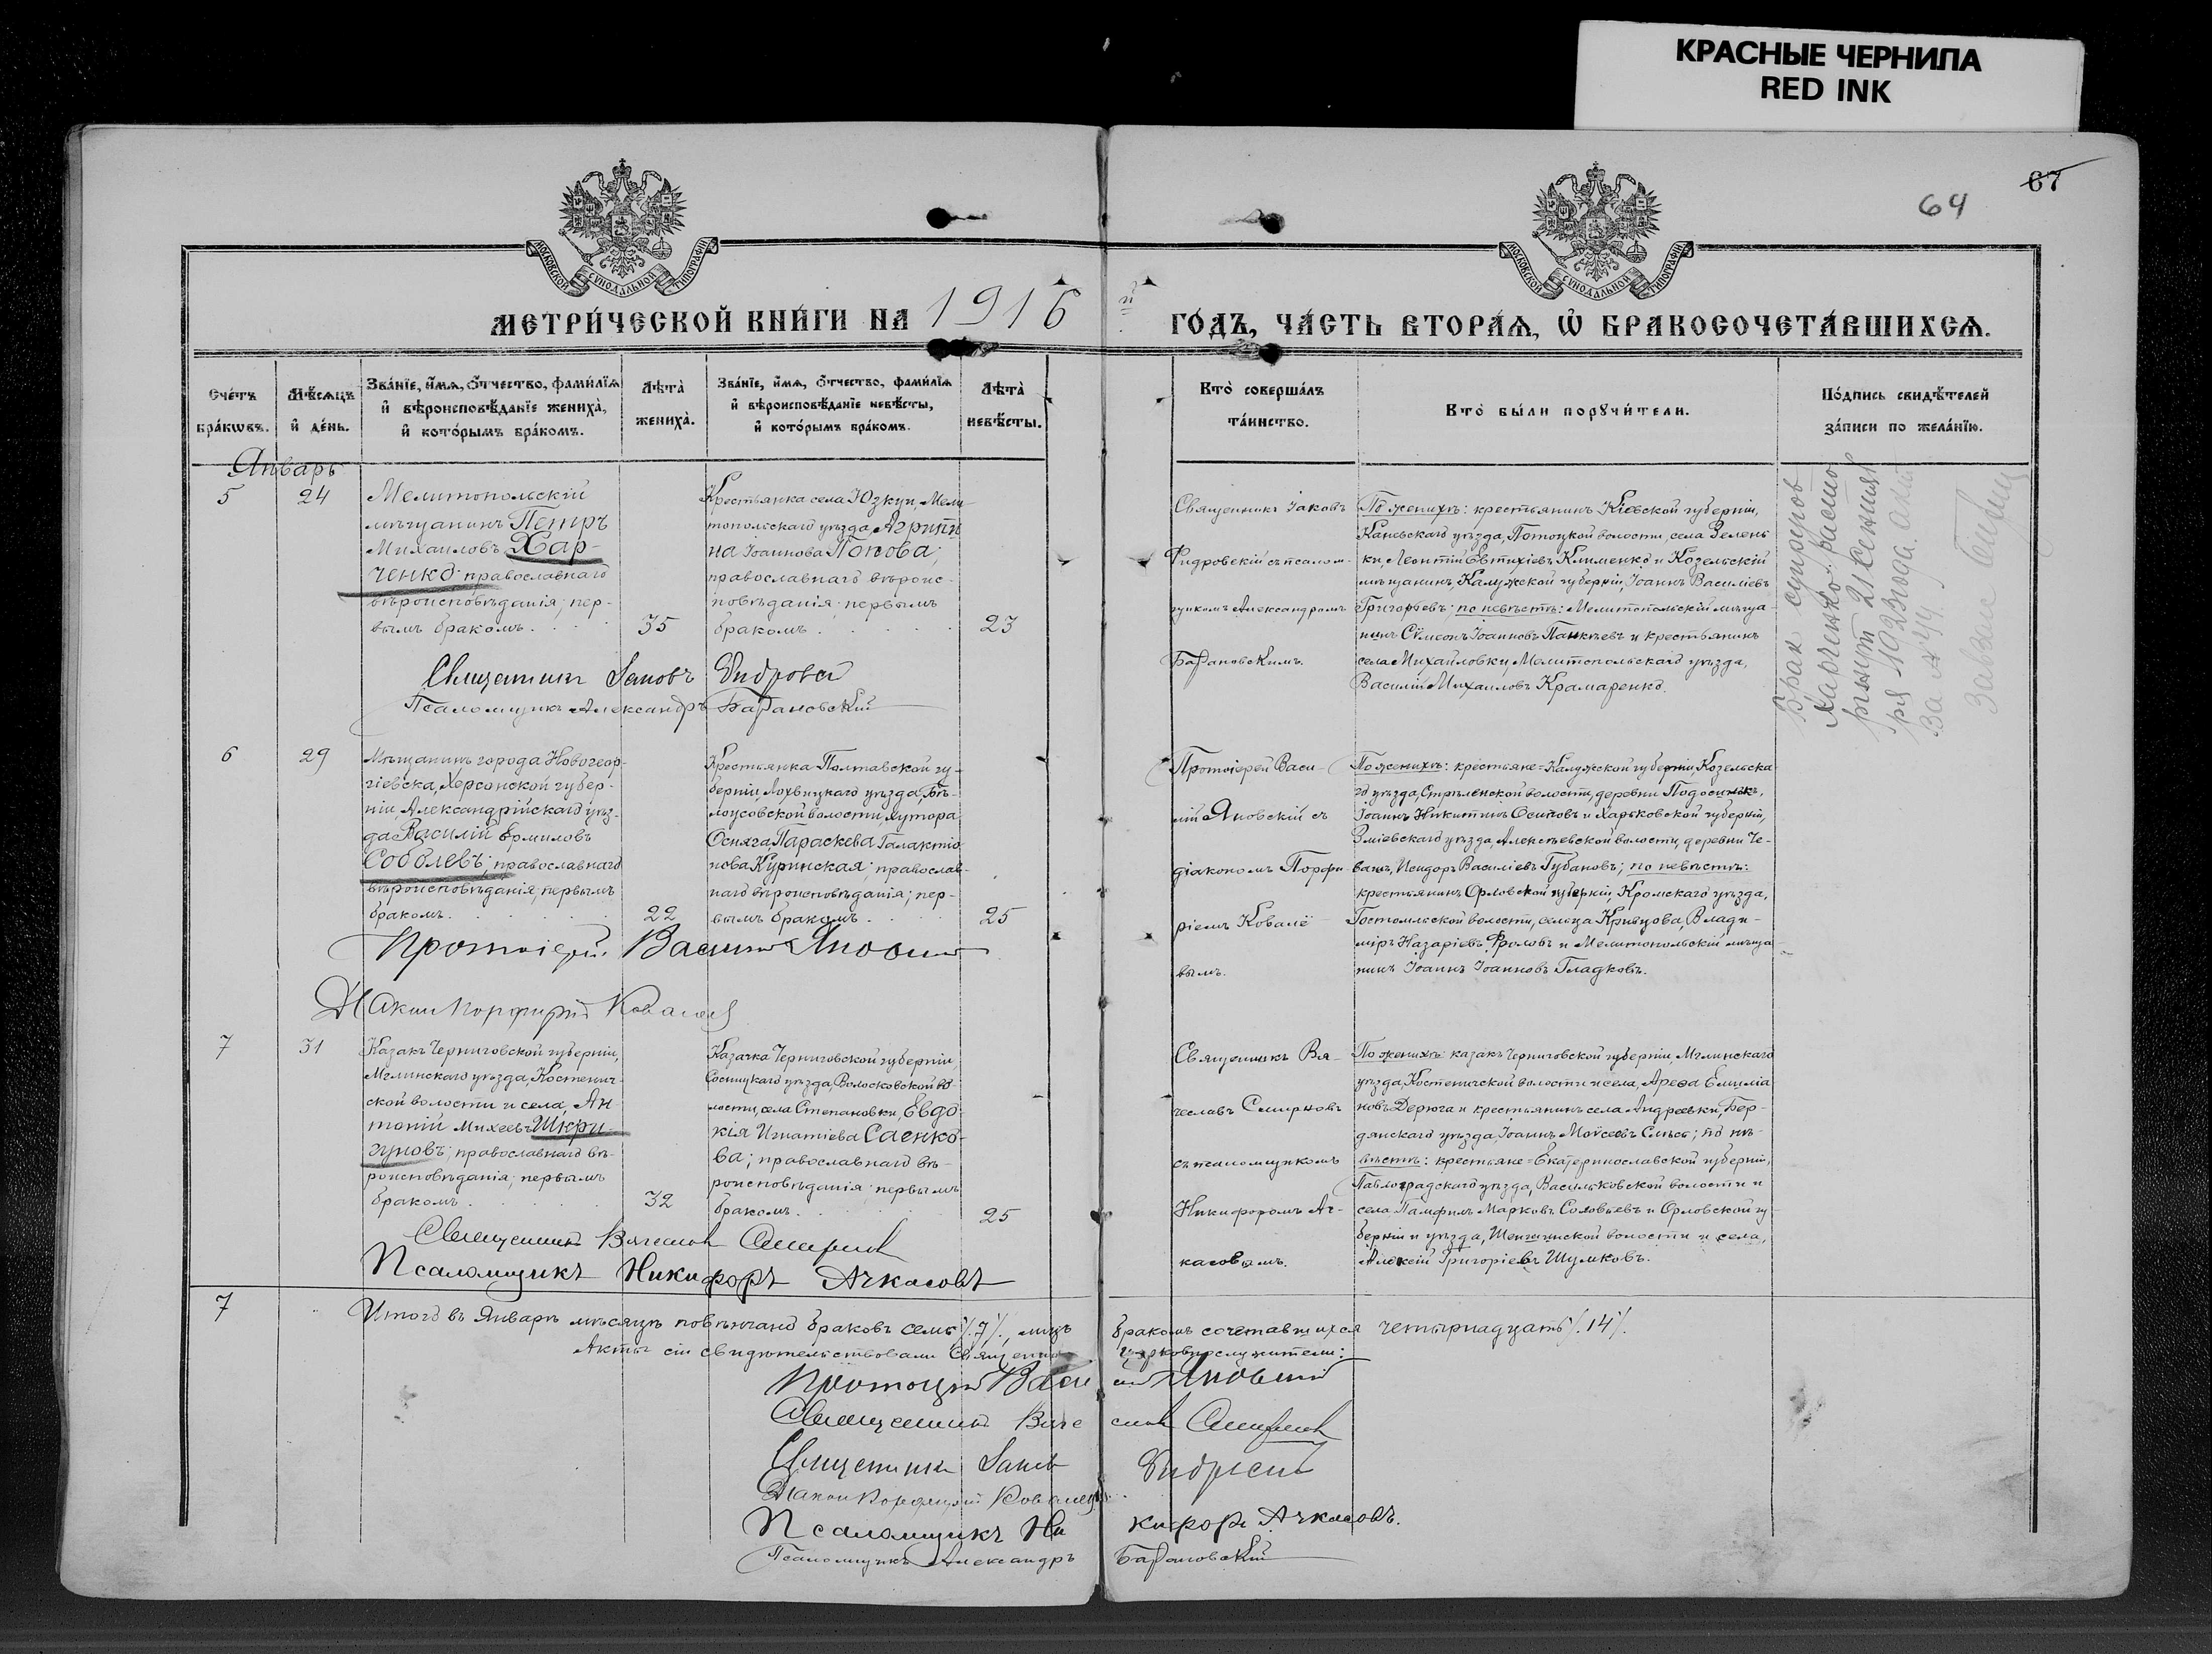 КРАСНЫЕ ЧЕРНИЛА
RED INK
67
64
МОСКОВСКОЙ СѴНОДАЛЬНОЙ ТИПОГРАФІИ
МОСКОВСКОЙ СѴНОДАЛЬНОЙ ТИПОГРАФІИ
МЕТРИ́ЧЕСКОЙ КНИ́ГИ НА 1916 й
ГО́ДЪ, ЧА́СТЬ ВТОРА́Ѧ, Ѡ҆ БРАКОСОЧЕТА́ВШИХСѦ.
Сче́тъ
бра́кωвъ.
Мѣ́сѧцъ
и҆ де́нь.
Зва́нїе, и҆́мѧ, ѻ҆́тчество, фами́лїѧ
и҆ вѣроисповѣ́данїе жениха̀,
и҆ кото́рымъ бра́комъ.
Лѣта̀
жениха̀.
Зва́нїе, и҆́мѧ, ѻ҆́тчество, фами́лїѧ
и҆ вѣроисповѣ́данїе невѣ́сты,
и҆ кото́рымъ бра́комъ.
Лѣта̀
невѣ́сты.
Кто̀ соверша́лъ
та́инство.
Кто̀ бы́ли порꙋчи́тели.
По́дпись свидѣ́телей
за́писи по жела́нїю.
Январь
5
24
Мелитопольскій
мѣщанинъ Петръ
Михаиловъ Хар-
ченко православнаго
вѣроисповѣданія; пер-
вымъ бракомъ.
35
Крестьянка села Юзкуи, Мели-
топольскаго уѣзда, Агрипи-
на Іоаннова Попова;
православнаго вѣроис-
повѣданія; первымъ
бракомъ
23
Священникъ Яковъ
Псаломщикъ Александръ Барановскій
Священникъ Іаковъ
съ псалом-
щикомъ Александромъ
Барановскимъ.
По женихѣ: крестьянинъ Кіевской губерніи,
Каневскаго уѣзда, Потоцкой волости, села Зелень-
ки, Леонтій Евтихіевъ Клименко и Козельскій
мѣщанинъ, Калужской губерніи, Іоаннъ Василіевъ
Григорьевъ; по невѣстѣ: Мелитопольскій мѣща-
нинъ Сѵмеонъ Іоанновъ и крестьянинъ
села Михайловки, Мелитопольскаго уѣзда,
Василій Михаиловъ Крамаренко.
Брак супругов
Харченко расто-
ргнут 21 Сентяб
ря 1923 года.
За № 44.
6
29
Мѣщанинъ города Новогеор-
гіевска, Херсонской губер-
ніи, Александрійскаго уѣз-
да Василій Ермиловъ
Соболевъ; православнаго
вѣроисповѣданія; первымъ
бракомъ.
22
Крестьянка Полтавской гу-
берніи, Лохвицкаго уѣзда, Бѣ-
лоусовской волости, хутора
Осняга, Параскева Галактіо-
нова Куринская; православ-
наго вѣроисповѣданія; пер-
вымъ бракомъ.
25
Протоіерей Василій Яновскій
Діаконъ Порфирій Ковалевъ
Протоіерей Васи-
лій Яновскій съ
діакономъ Порфи-
ріемъ Ковалё-
вымъ.
По женихѣ: крестьяне = Калужской губерніи, Козельска-
го уѣзда, Стрѣленской волости, деревни Подосинокъ,
Іоаннъ Никитинъ Осиповъ и Харьковской губерніи,
Зміевскаго уѣзда, Алексѣевской волости, деревни
Исидоръ Василіевъ Губановъ; по невѣстѣ:
крестьянинъ Орловской губерніи, Кромскаго уѣзда,
Гостомльской волости, сельца Кривцова, Влади-
міръ Назаріевъ Фроловъ и Мелитопольскій мѣща-
нинъ Іоаннъ Іоанновъ Гладковъ.
7
31
Казакъ Черниговской губерніи,
Мглинскаго уѣзда, Костенич-
ской волости и села, Ан-
тоній Михеевъ Шкри-
гуновъ; православнаго вѣ-
роисповѣданія; первымъ
бракомъ
32
Казачка Черниговской губерніи,
Сосницкаго уѣзда, Волосковской во-
лости, села Степановки, Евдо-
кія Игнатіева Саенко-
ва; православнаго вѣ-
роисповѣданія; первымъ
бракомъ.
25
Священникъ Вячеславъ Смирновъ
Псаломщикъ Никифоръ Ачкасовъ
Священникъ Вя-
чеславъ Смирновъ
съ псаломщикомъ
Никифоромъ Ач-
касовымъ.
По женихѣ: казакъ Черниговской губерніи, Мглинскаго
уѣзда, Костеничской волости и села, Емиліа-
новъ Дерюга и крестьянинъ села Андреевки, Бер-
дянскаго уѣзда, Іоаннъ Моѵсеевъ; по не-
вѣстѣ: крестьяне = Екатеринославской губерніи,
Павлоградскаго уѣзда, Васильковской волости и
села, Памфилъ Марковъ Соловьевъ и Орловской гу-
берніи и уѣзда, волости и села,
Алексій Григоріевъ Шумковъ.
7
Итого въ Январѣ мѣсяцѣ повѣнчано браковъ семь /.7/., лицъ бракомъ сочетавшихся четырнадцать /.14/.
Акты сіи свидѣтельствовали Священно-церковнослужители:
Протоіерей Василій Яновскій
Священникъ Вячеславъ Смирновъ
Священникъ Яковъ
Діаконъ Порфирій Ковалевъ
Псаломщикъ Никифоръ Ачкасовъ.
Псаломщикъ Александръ Барановскій